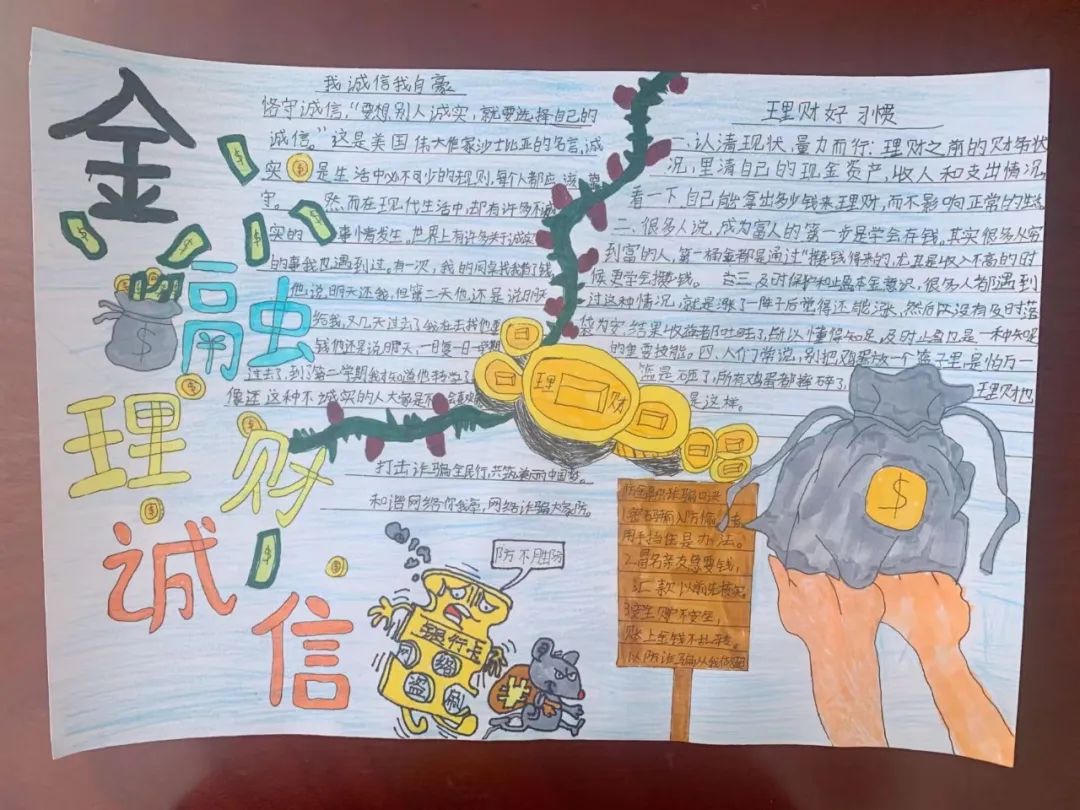 金
融
理
财
诚
信
我诚信我自豪
恪守诚信,“要想别人诚实,就要选择自己的
诚信。”这是美国伟大作家沙士比亚的名言,诚
实是生活中必不可少的规则,每个人都应该遵
守。然而在现代生活中,却有许多不诚
实的事情发生,世界上有许多关于诚实
的事我也遇到过。有一次,我的同桌找我借了钱
他说明天还我,但第二天他还是说明天
给我,又几天过去了我在去找他要
钱他还是说明天,一日复一日一学期
过去了,到了第二学期我才知道他转学了
像这种不诚实的人大都是不会
打击诈骗全民行,共筑美丽中国梦。
和谐网络你我享,网络诈骗大家防。
理财好习惯
一、认清现状,量力而行:理财之前的财务状
况,里清自己的现金资产,收人和支出情况,
看一下自己能拿出多少钱来理财,而不影响正常的生活
二、很多人说,成为富人的第一步是学会存钱,其实很多从穷
到富的人,第一桶金都是通过“攒钱得来的,尤其是收入不高的时
候更学会攒钱。 三及时保护和止盈本金意识,很多人都遇到
过这种情况,就是涨了一阵子后觉得还能涨,然后又没有及时落
袋为安结果收益都吐回去了,所以懂得知足,及时止盈也是一种
的重要技能。四、人们常说,别把鸡蛋放一个篮子里是怕万一
篮是砸了,所有鸡蛋都摔碎了, 理财也
是这样。
理 财
防不胜防
银行卡
网络
盗刷
防金融诈骗口诀
1.密码输入防偷
用手挡住是办法。
2.冒名亲友急要钱,
汇款以前先核实
账上金钱不乱转。
以防诈骗从我做起